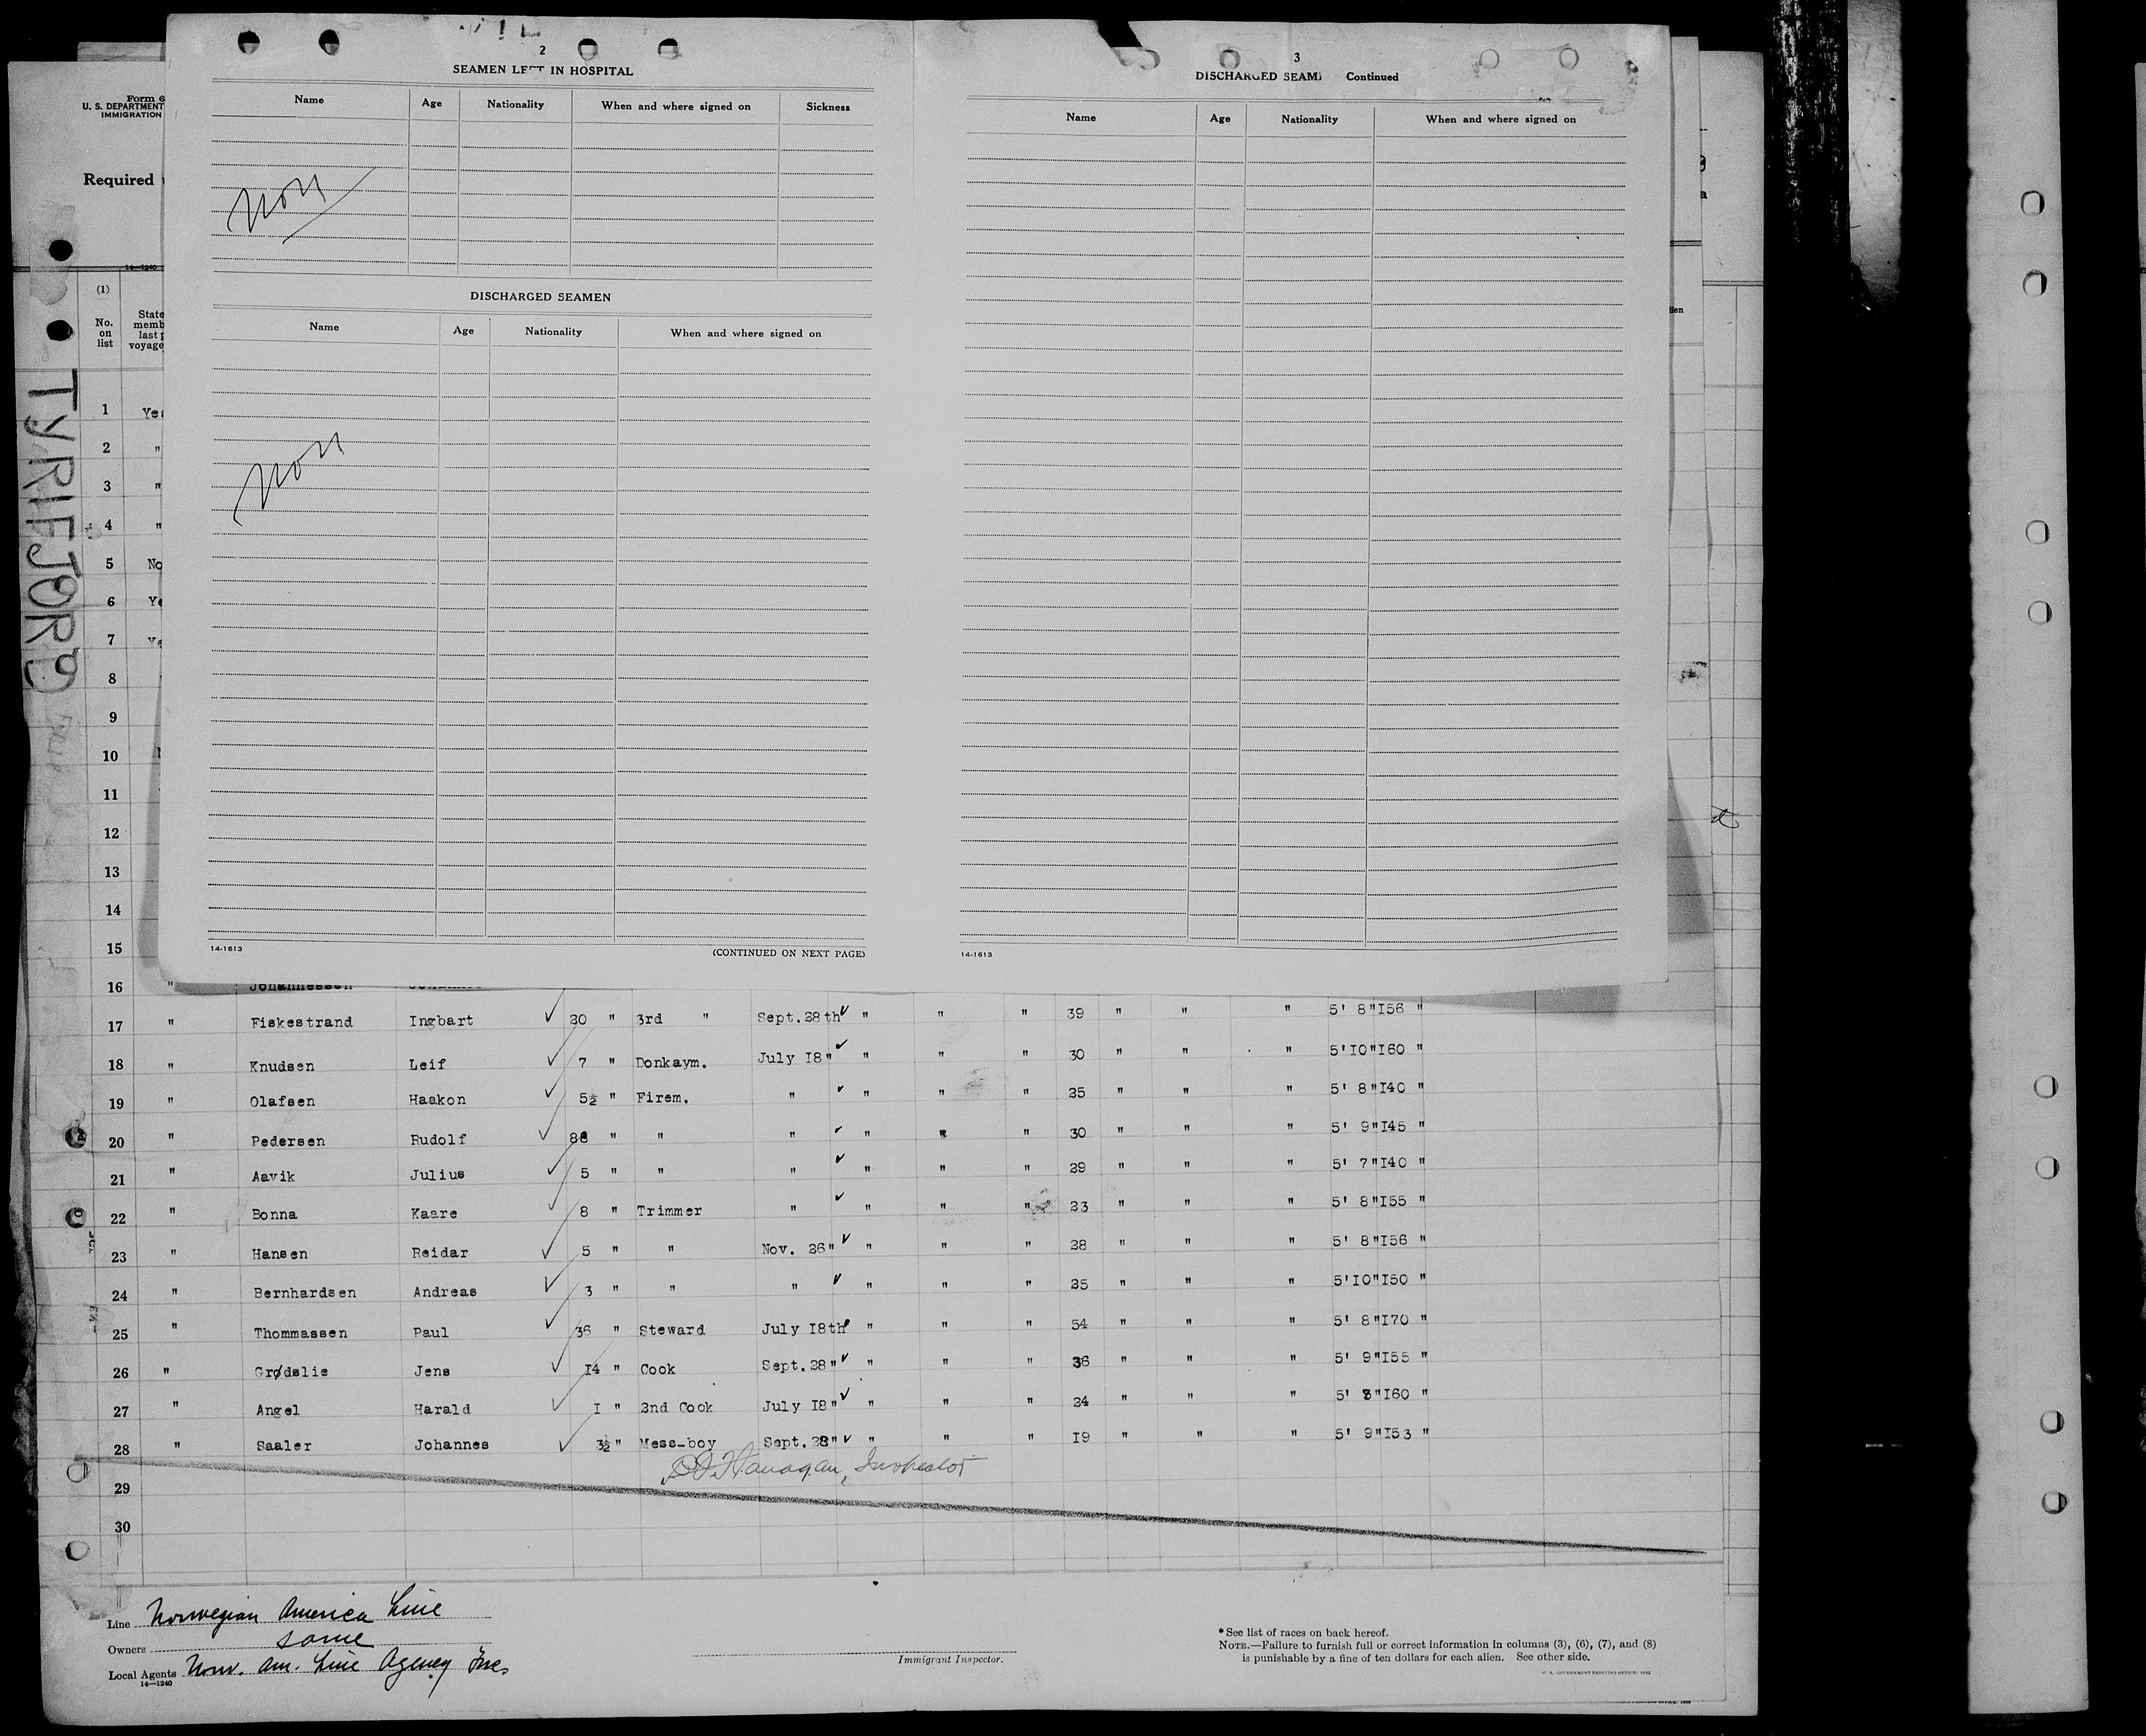 2
SEAMEN LEFT IN HOSPITAL
Name Age Nationality When and where signed on Sickness
DISCHARGED SEAMEN
Name Age Nationality When and where signed on
14-1613 (CONTINUED ON NEXT PAGE)
3
DISCHARGED SEAM Continued
Name Age Nationality When and where signed on
14-1613
Form 6
U. S. DEPARTMENT
IMMIGRATION
Required
14-1240
(1)
No. on list
State
memb
last p
voyage
TYRIFJORD
1 Yes
2 "
3 "
4 "
5 No
6 Ye
7 Ye
8
9
10
11
12
13
14
15
16 " Johannessen
17 " Fiskestrand Ingbart 20 " 3rd " Sept.28th " " " 39 " " " 5' 8" I56 "
18 " Knudsen Leif 7 " Donkaym. July I8" " " " 30 " " " 5'I0" I60 "
19 " Olafsen Haakon 5½ " Firem. " " " " 25 " " " 5' 8" I40 "
20 " Pedersen Rudolf " " " " " " 30 " " " 5' 9" I45 "
21 " Aavik Julius 5 " " " " " " 29 " " " 5' 7" I40 "
22 " Bonna Kaare 8 " Trimmer " " " " 23 " " " 5' 8" I55 "
23 " Hansen Reidar 5 " " Nov. 26" " " " 28 " " " 5' 8" I56 "
24 " Bernhardsen Andreas 3 " " " " " " 25 " " " 5'I0" I50 "
25 " Thommassen Paul 36 " Steward July I8th " " " 54 " " " 5' 8" I70 "
26 " Grødslie Jens I4 " Cook Sept.28" " " " 36 " " " 5' 9" I55 "
27 " Angel Harald I " 2nd Cook July I8" " " " 24 " " " 5' 8" I60 "
28 " Saaler Johannes 3½ " Mess-boy Sept.28" " " " I9 " " " 5' 9" I53 "
Flanagan, Inspector
29
30
Line Norwegian America Line
Owners same
Local Agents Norw. Am. Line Agency Inc.
14-1240
Immigrant Inspector.
* See list of races on back hereof.
NOTE.—Failure to furnish full or correct information in columns (3), (6), (7), and (8)
is punishable by a fine of ten dollars for each alien. See other side.